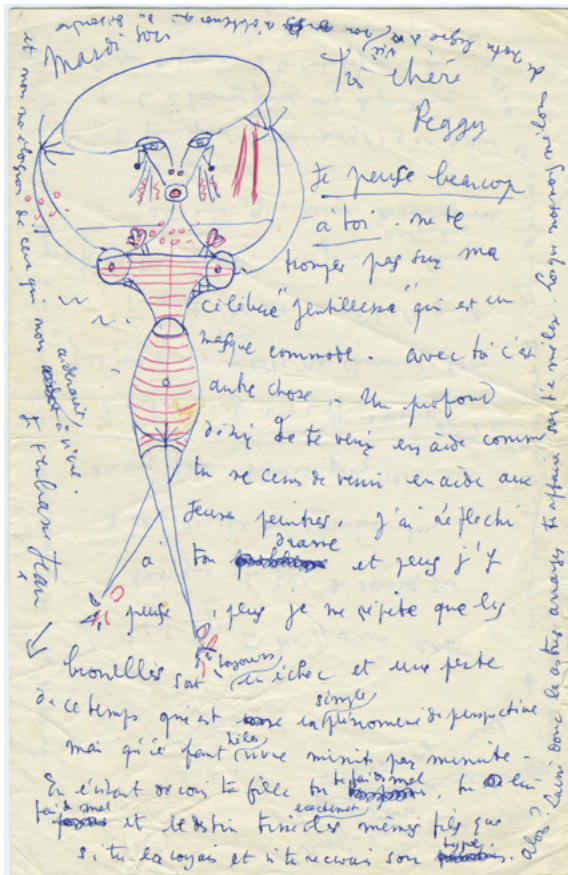 Mardi soir
Très chère
Peggy
Je pense beaucoup
à toi. ne te
trompes pas sur ma
célèbre "gentillesse" qui est un
masque commode. avec toi c'est
autre chose. Un profond
désir de te venir en aide comme
tu ne cesses de venir en aide aux
jeunes peintres. J'ai réfléchi
à ton drame et plus j'y
pense, plus je me répète que les
brouilles sont toujours un échec et une perte
de ce temps qui est un simple phénomène de perspective
mais qu'il faut hélas vivre minute par minute.
En évitant de voir ta fille tu te fais du mal, tu lui
fais du mal et le destin tisse les mêmes fils que
si tu la voyais et si tu recevais son type.
alors? Laisse donc les astres arranger tes affaires sans t'en mêler. Lorsque nous nous mêlons
de notre ligne de vie
et nous nous éloignons de ceux qui nous aideraient à vivre.
Je t'embrasse Jean